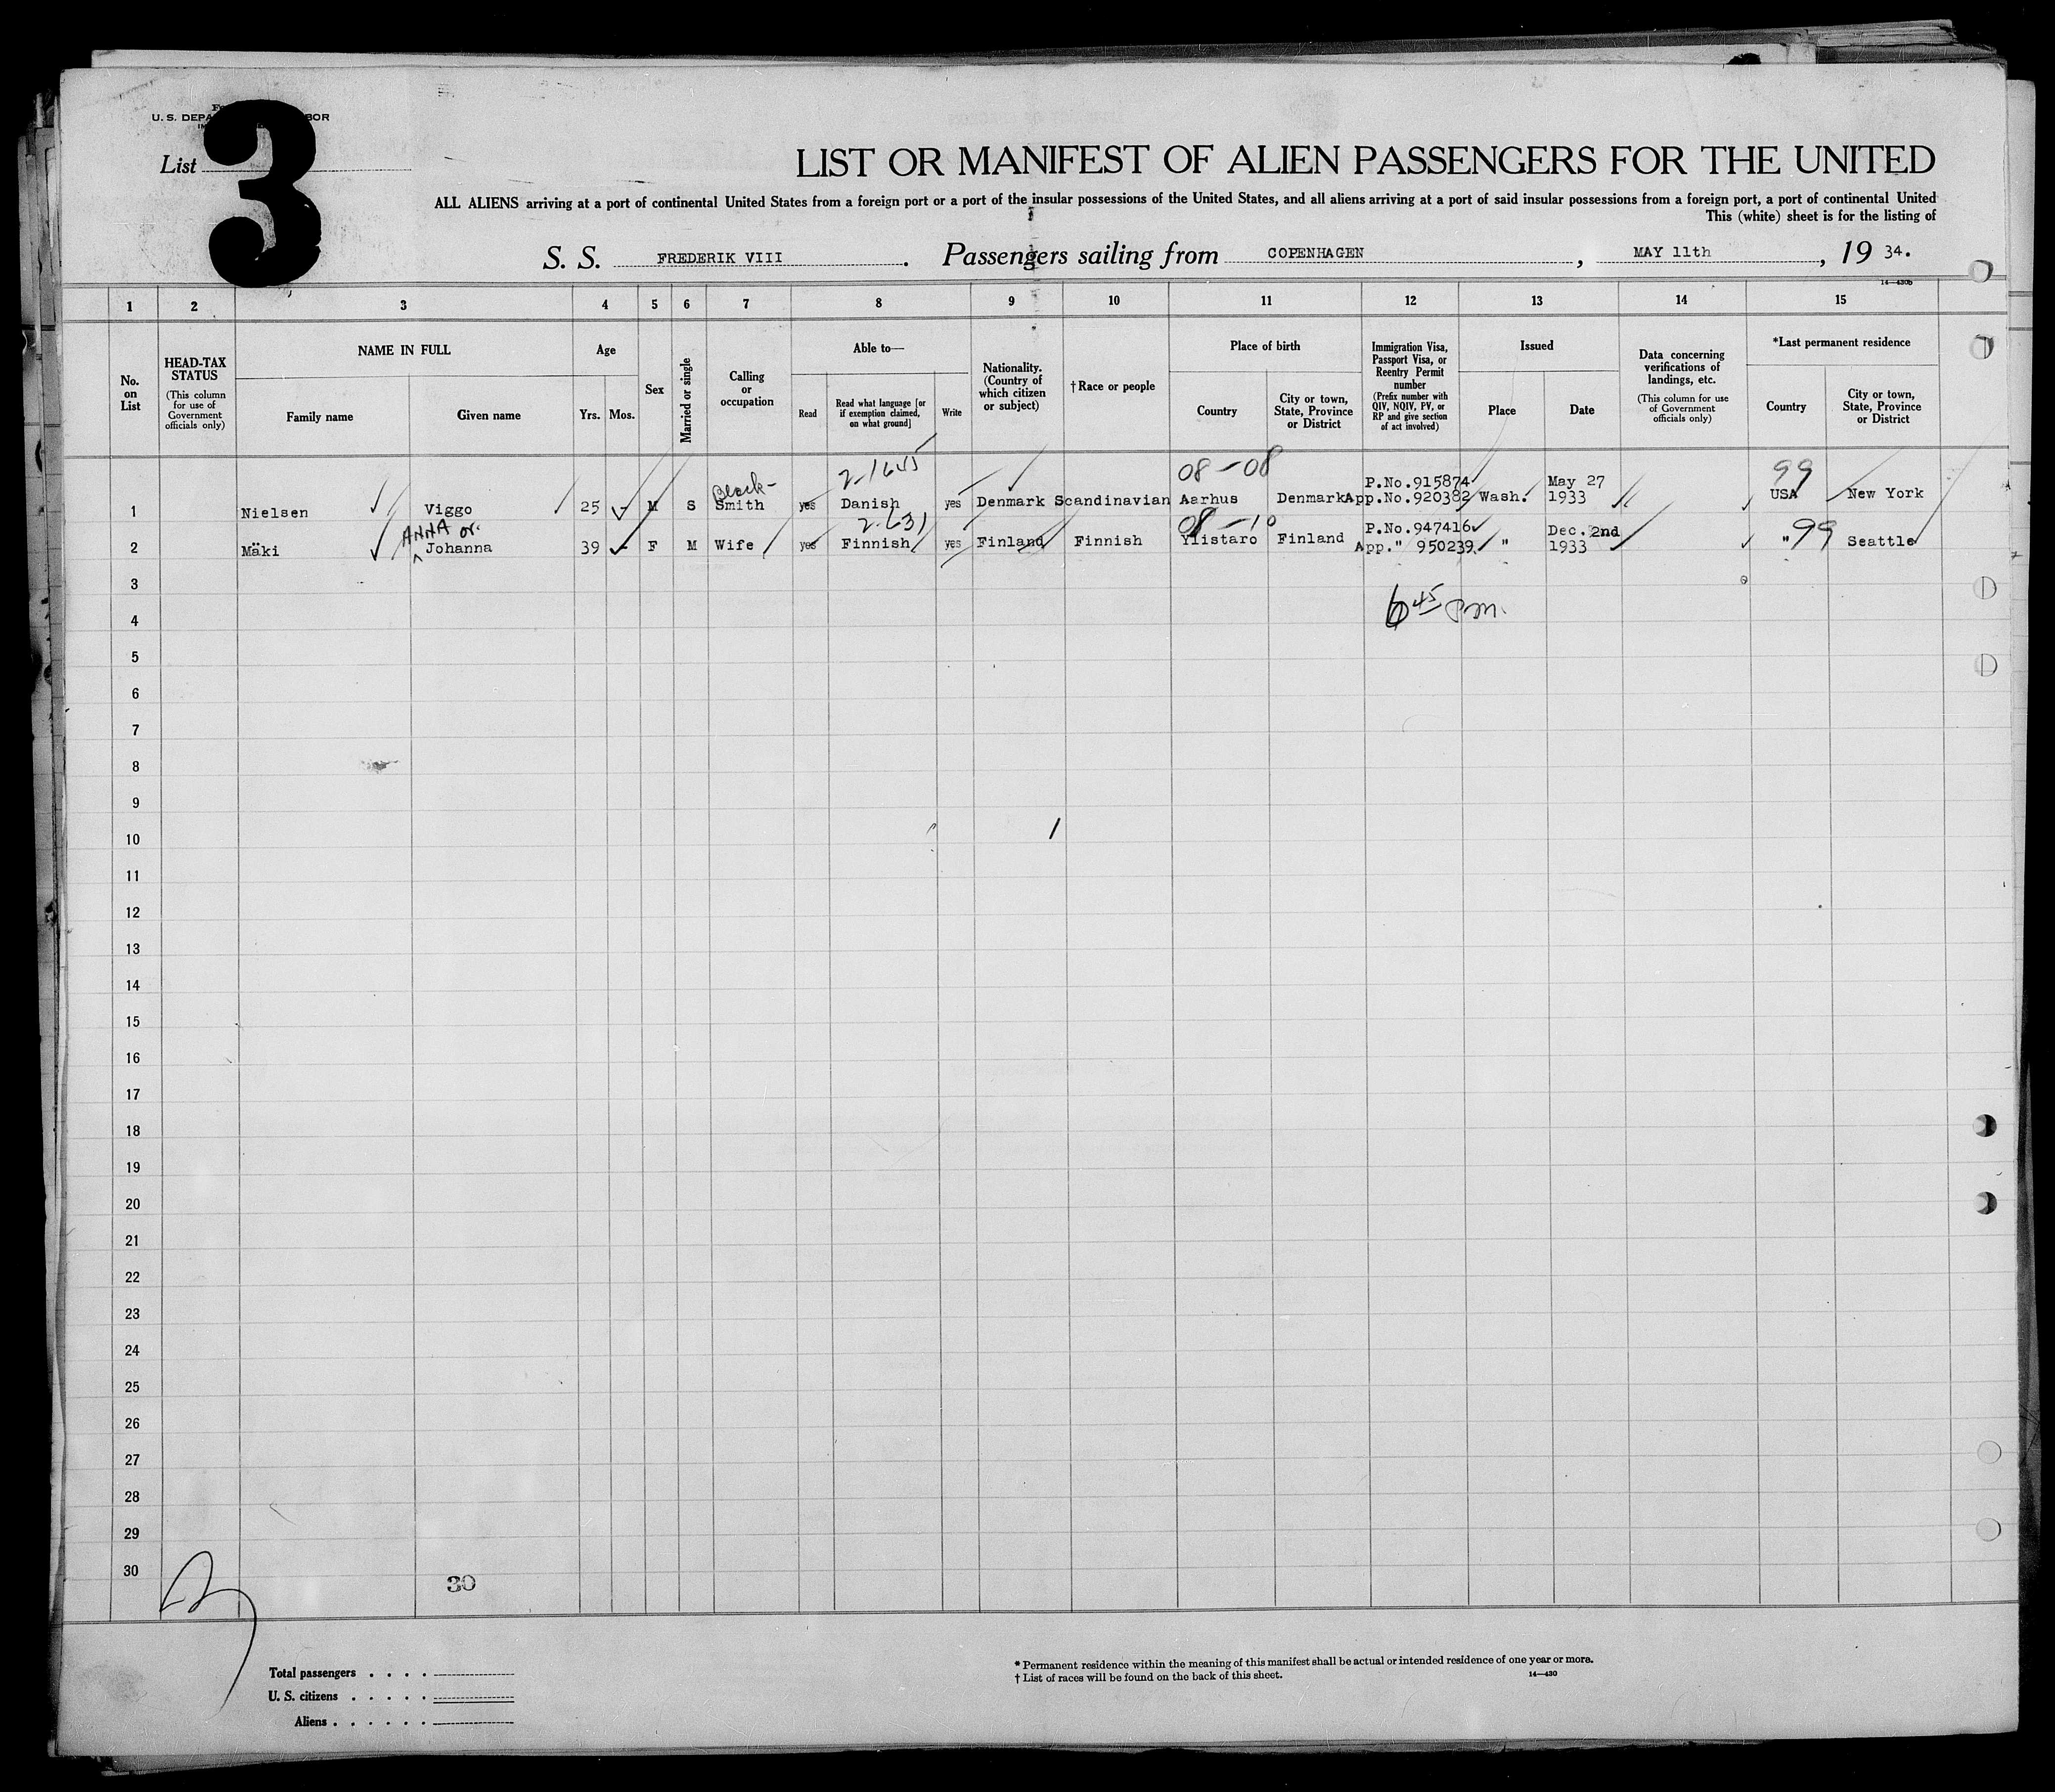 U. S. DEPA BOR
List 3
LIST OR MANIFEST OF ALIEN PASSENGERS FOR THE UNITED
ALL ALIENS arriving at a port of continental United States from a foreign port or a port of the insular possessions of the United States, and all aliens arriving at a port of said insular possessions from a foreign port, a port of continental United
This (white) sheet is for the listing of
S. S. FREDERIK VIII . Passengers sailing from COPENHAGEN , MAY 11th , 19 34.
14—430b
1 2 3 4 5 6 7 8 9 10 11 12 13 14 15
No. on List
HEAD-TAX STATUS (This column for use of Government officials only)
NAME IN FULL
Family name Given name
Age
Yrs. Mos.
Sex
Married or single
Calling or occupation
Able to—
Read
Read what language [or if exemption claimed, on what ground]
Write
Nationality. (Country of which citizen or subject)
†Race or people
Place of birth
Country
City or town, State, Province or District
Immigration Visa, Passport Visa, or Reentry Permit number (Prefix number with QIV, NQIV, PV, or RP and give section of act involved)
Issued
Place Date
Data concerning verifications of landings, etc. (This column for use of Government officials only)
*Last permanent residence
Country
City or town, State, Province or District
Black- 2-1645 08-08 P.No.915874 May 27 99
1 Nielsen Viggo 25 - M S Smith yes Danish yes Denmark Scandinavian Aarhus Denmark App.No.920382 Wash. 1933 USA New York
ANNA or 2-(31) 08-10 P.No.947416 Dec. 2nd 99
2 Mäki Johanna 39 - F M Wife yes Finnish yes Finland Finnish Ylistaro Finland App." 950239 " 1933 " Seattle
3
6 45 pm.
4
5
6
7
8
9
10
11
12
13
14
15
16
17
18
19
20
21
22
23
24
25
26
27
28
29
30
30
Total passengers . . . .
U. S. citizens . . . . .
Aliens . . . . . .
* Permanent residence within the meaning of this manifest shall be actual or intended residence of one year or more.
† List of races will be found on the back of this sheet.
14—430